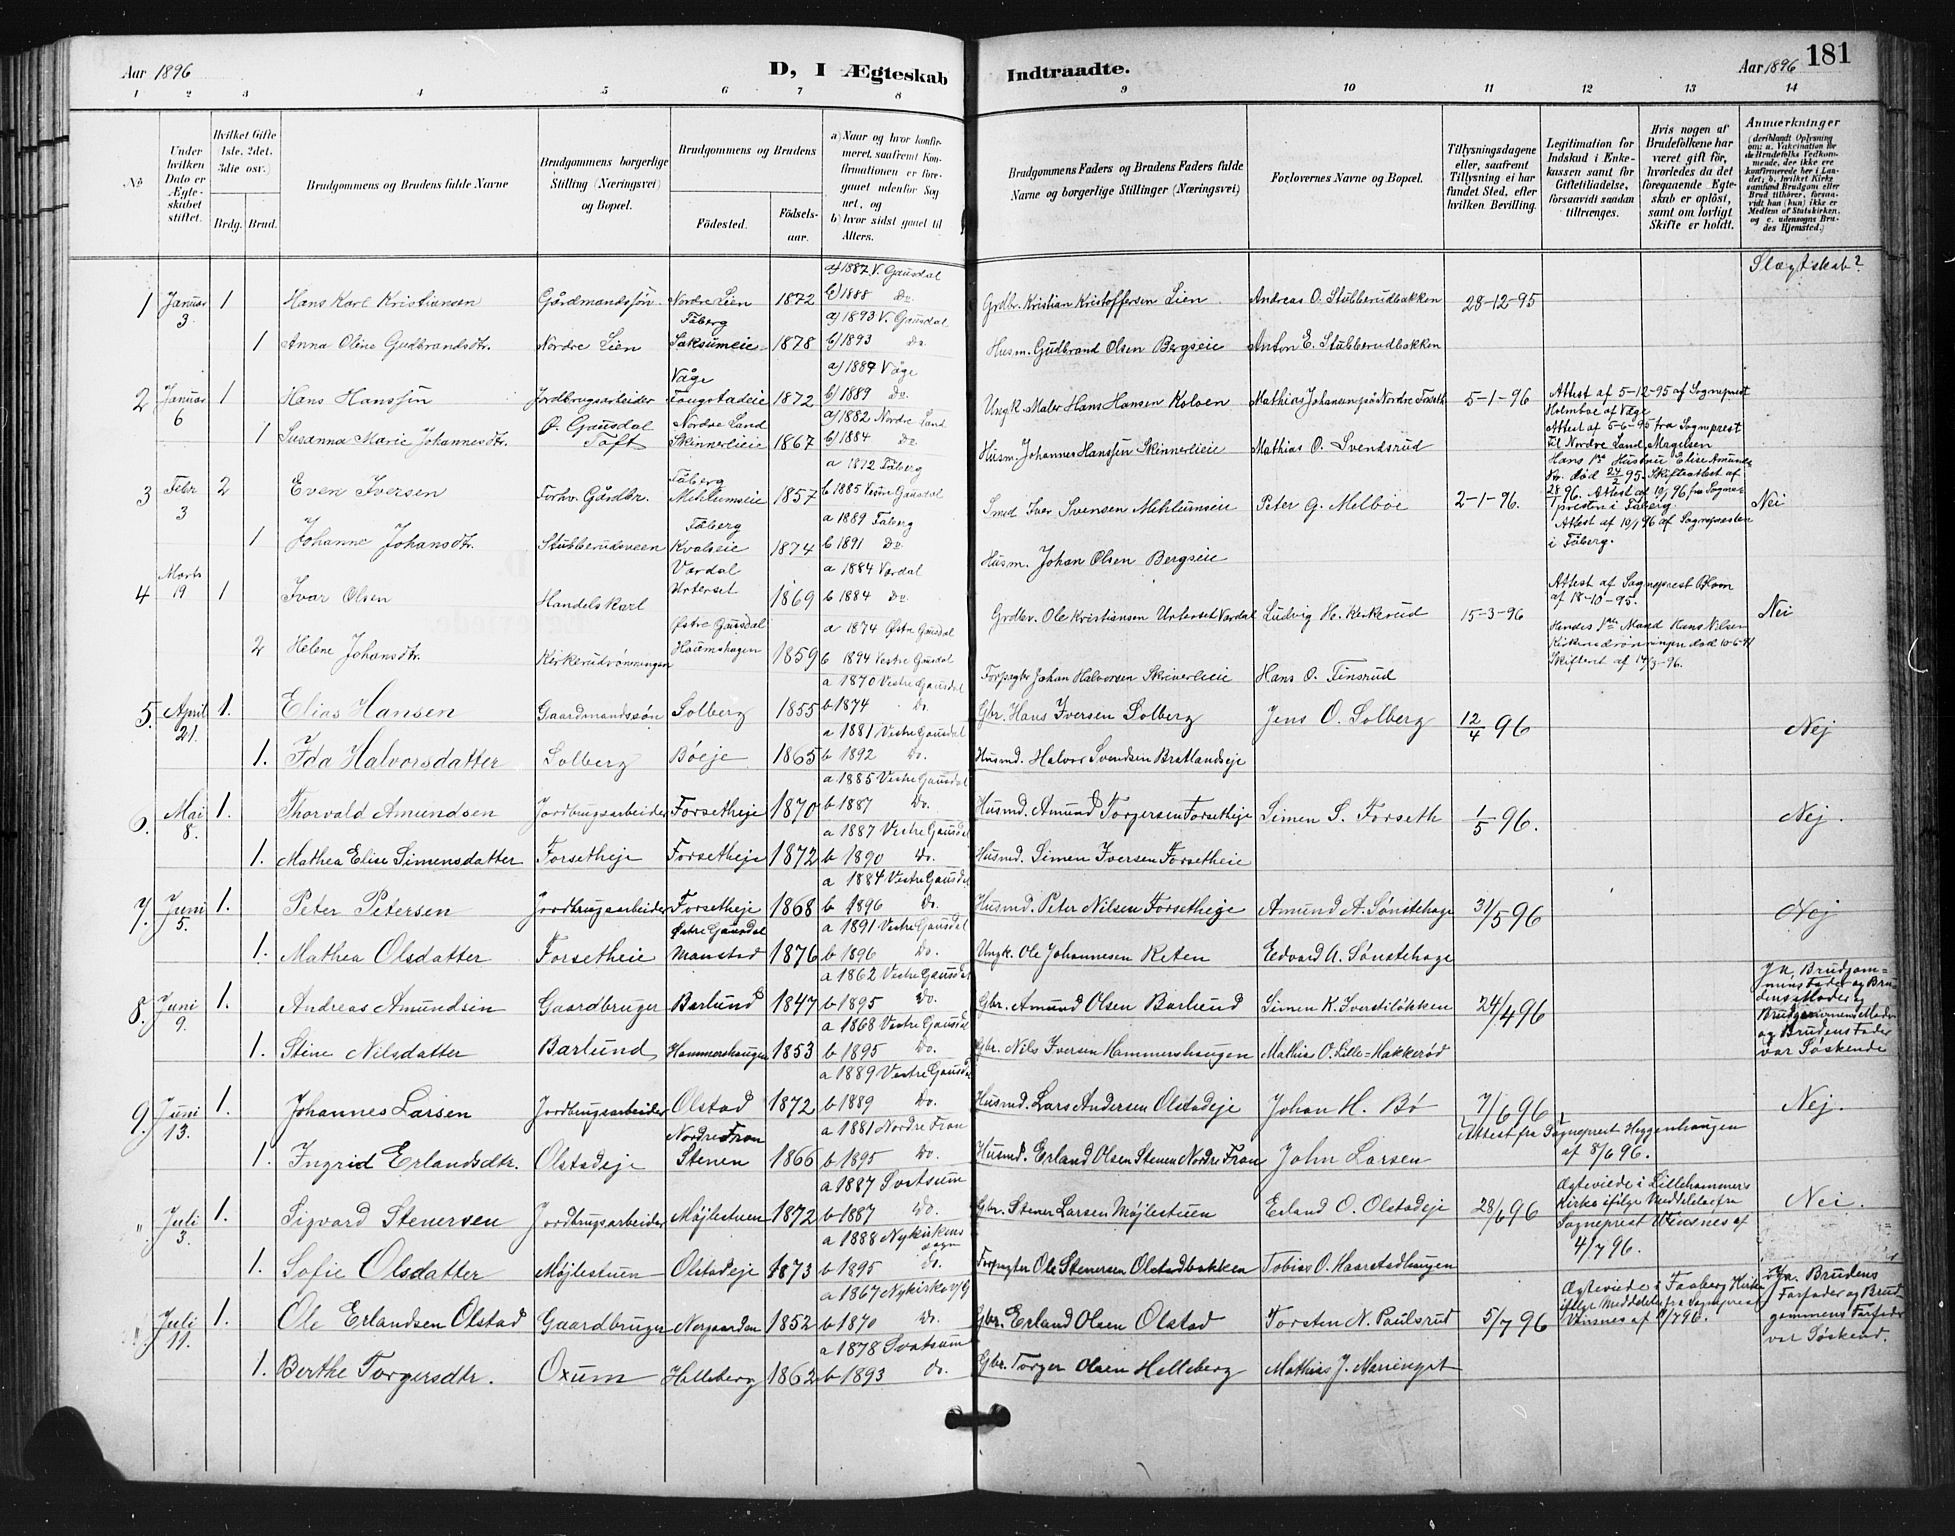 Aar 1896
D, I Ægteskab Indtraadte.
Aar 1896 181
1 2 3 4 5 6 7 8 9 10 11 12 13 14
No
Under hvilken Dato er Ægteskabet stiftet.
Hvilket Gifte (1ste, 2det, 3die osv.)
Brdg. Brud.
Brudgommens og Brudens fulde Navne
Brudgommens borgerlige Stilling (Næringsvei) og Bopæl.
Brudgommens og Brudens
Fødested. Fødselsaar.
a) Naar og hvor konfirmeret, saafremt Konfirmationen er foregaaet udenfor Sognet, og
b) hvor sidst gaaet til Alters.
Brudgommens Faders og Brudens Faders fulde Navne og borgerlige Stillinger (Næringsvei)
Forlovernes Navne og Bopæl.
Tillysningsdagene eller, saafremt Tillysning ei har fundet Sted, efter hvilken Bevilling.
Legitimation for Indskud i Enkekassen samt for Giftetilladelse, forsaavidt saadan tiltrænges.
Hvis nogen af Brudefolkene har været gift før, hvorledes da det foregaaende Ægteskab er opløst, samt om lovligt Skifte er holdt.
Anmærkninger
(deriblandt Oplysning om: a. Vakcination for de Brudefolks Vedkommende, der ikke ere konfirmerede her i Landet; b. hvilket Kirkesamfund Brudgom eller Brud tilhører, forsaavidt han (hun) ikke er Medlem af Statskirken, og c. udensogns Brudes Hjemsted.)
Slægtskab?
1 Januar 3 1 Hans Karl Kristiansen Gårdmandssøn Nordre Lien 1872 a) 1887 V. Gausdal b) 1888 Do Grdbr. Kristian Kristoffersen Lien Andreas O. Stubberudbakken 28-12-95
1 Anna Oline Gudbrandsdtr. Nordre Lien Fåberg Saksumeie 1878 a) 1893 V. Gausdal b) 1893 Do Husm. Gudbrand Olsen Bergseie Anton E. Stubberudbakken
2 Januar 6 1 Hans Hanssen Jordbrugsarbeider Ø. Gausdal Våge 1872 a) 1887 Våge b) 1889 Do Ungk. Maler Hans Hansen Kolden Mathias Nordre Forseth 5-1-96 Attest af 5-12-95 af Sogneprest Holmboe af Våge
1 Susanna Marie Johannesdtr. Toft Nordre Land Skinnerlieie 1867 a) 1882 Nordre Land b) 1884 Do Husm. Johannes Hanssen Skinnerlieie Mathias O. Svendsrud Attest af 5-6-95 fra Sogneprest til Nordre Land Magelsen
3 Febr 3 2 Even Iversen Forhv. Gårdbr. Fåberg Mehlumseie 1857 a 1872 Fåberg b 1885 Vestre Gausdal Smed Iver Svensen Mehlumseie Peter G. Melbøe 2-1-96. Hans 1ste Hustru Elise Amundsdtr. død 24/2 95. Skifteattest af 28/1 96. Attest af 10/1 96 fra Sognepresten i Fåberg. Nei
1 Johanne Johansdtr. Stubberudsveen Fåberg Kvalseie 1874 a 1889 Fåberg b 1891 Do Husm. Johan Olsen Bergseie Attest af 10/1 96 af Sognepresten i Fåberg.
4 Marts 19 1 Ivar Olsen Handelskarl Vardal Urterset 1869 a 1884 Vardal b 1884 Do Grdbr. Ole Kristiansen Urterset Vardal Ludvig H. Kirkerud 15-3-96 Attest af Sogneprest Blom af 18-10-95. Nei
2 Helene Johansdtr. Kirkerudrønningen Østre Gausdal Hoiemshagen 1859 a 1874 Østre Gausdal b 1894 Vestre Gausdal Forpagter Johan Halvorsen Skriverlieie Hans O. Tinsrud Hendes 1ste Mand Hans Nilsen Kirkerudrønningen død 10-6-91 Skifteat af 14/3-96.
5. April 21. 1. Elias Hansen Gaardmandssøn Solberg 1855 a 1870 Vestre Gausdal b 1874 Do. Gbr. Hans Iversen Solberg Jens O. Solberg 12/4 96 Nej
1. Ida Halvorsdatter Solberg Bøeje 1865 a 1881 Vestre Gausdal b 1892 Do. Husmd. Halvor Svendsen Bratlandseje
6. Mai 8. 1. Thorvald Amundsen Jordbrugsarbeider Forsetheje 1870 a 1885 Vestre Gausdal b 1887 Do. Husmd. Amund Torgersen Forsetheje Simen S. Forseth 1/5 96. Nej.
1. Mathea Elise Simensdatter Forsetheje Forsetheje 1872 a 1887 Vestre Gausdal b 1890 Do. Husmd. Simen Iversen Forsetheie
7. Juni 5. 1. Peter Petersen Jordbrugsarbeider Forsetheje 1868 a 1884 Vestre Gausdal b 1896 Do. Husmd. Peter Nilsen Forsetheje Amund A. Sønstehage 31/5 96 Nej
1. Mathea Olsdatter Forsetheie Østre Gausdal Manstad 1876 a 1891 Vestre Gausdal b 1896 Do. Ungk. Ole Johannesen Reten Edvard A. Sønstehage
8. Juni 9. 1. Andreas Amundsen Gaardbruger Barlund 1847 a 1862 Vestre Gausdal b 1895 Do. Gbr. Amund Olsen Barlund Simen K. Iverstiløkken 24/4 96 Ja, Brudgommens Fader og Brudens Moder og Brudgommens Moder og Brudens Fader var Søskende
1. Stine Nilsdatter Barlund Hammershaugen 1853 a 1868 Vestre Gausdal b 1895 Do. Gbr. Nils Iversen Hammershaugen Mathis O. Lille-Hakkerød
9. Juni 13. 1. Johannes Larsen Jordbrugsarbeider Olstad 1872 a 1889 Vestre Gausdal b 1889 Do. Husmd. Lars Andersen Olstadeje Johan H. Bø 7/6 96 Nej.
1. Ingrid Erlandsdtr. Olstadeje Nordre Fron Stenen 1866 a 1881 Nordre Fron b 1895 Do. Husmd. Erland Olsen Stenen Nordre Fron John Larsen Attest fra Sogneprest Heggenhaugen af 8/6 96.
" Juli 3. 1. Sigvard Stenersen Jordbrugsarbeider Møjlestuen 1872 a 1887 Svatsum b 1887 Do. Gbr. Stener Larsen Møjlestuen Erland O. Olstadeje 28/6 96 Ægteviede i Lillehammers Kirke ifølge Meddelelse fra Sogneprest Wensnes af 4/7 96. Nei.
1. Sofie Olsdatter Møjlestuen Olstadeje 1873 a 1888 Nykirkens sogn b 1895 do. Forpagter Ole Stenersen Olstadbakken Tobias O. Haarstadhaugen
Juli 11. 1. Ole Erlandsen Olstad Gaardbruger Norgaarden 1852 a 1867 Nykirke V/G b 1870 Do. Gbr. Erland Olsen Olstad Torsten N. Paulsrud 5/7 96 Ægteviede i Faaberg Kirke ifølge Meddelelse fra Sogneprest Wensnes af 11/7 96. Ja. Brudens Farfader og Brudgommens Farfader var Søskend.
1. Berthe Torgersdtr. Oxum Helleberg 1862 a 1878 Svatsum b 1893 Do. Gbr. Torger Olsen Helleberg Mathias J.